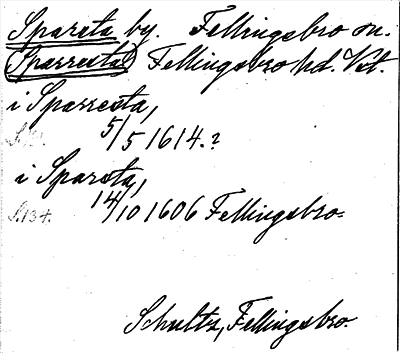 Sparsta by. Fellingsbro sn.
Sparresta Fellingsbro hd. Vst.
i Sparresta,
5/5 1614.?
i Sparsta,
S. 134. 14/10 1606 Fellingsbro.
Schultz, Fellingsbro.